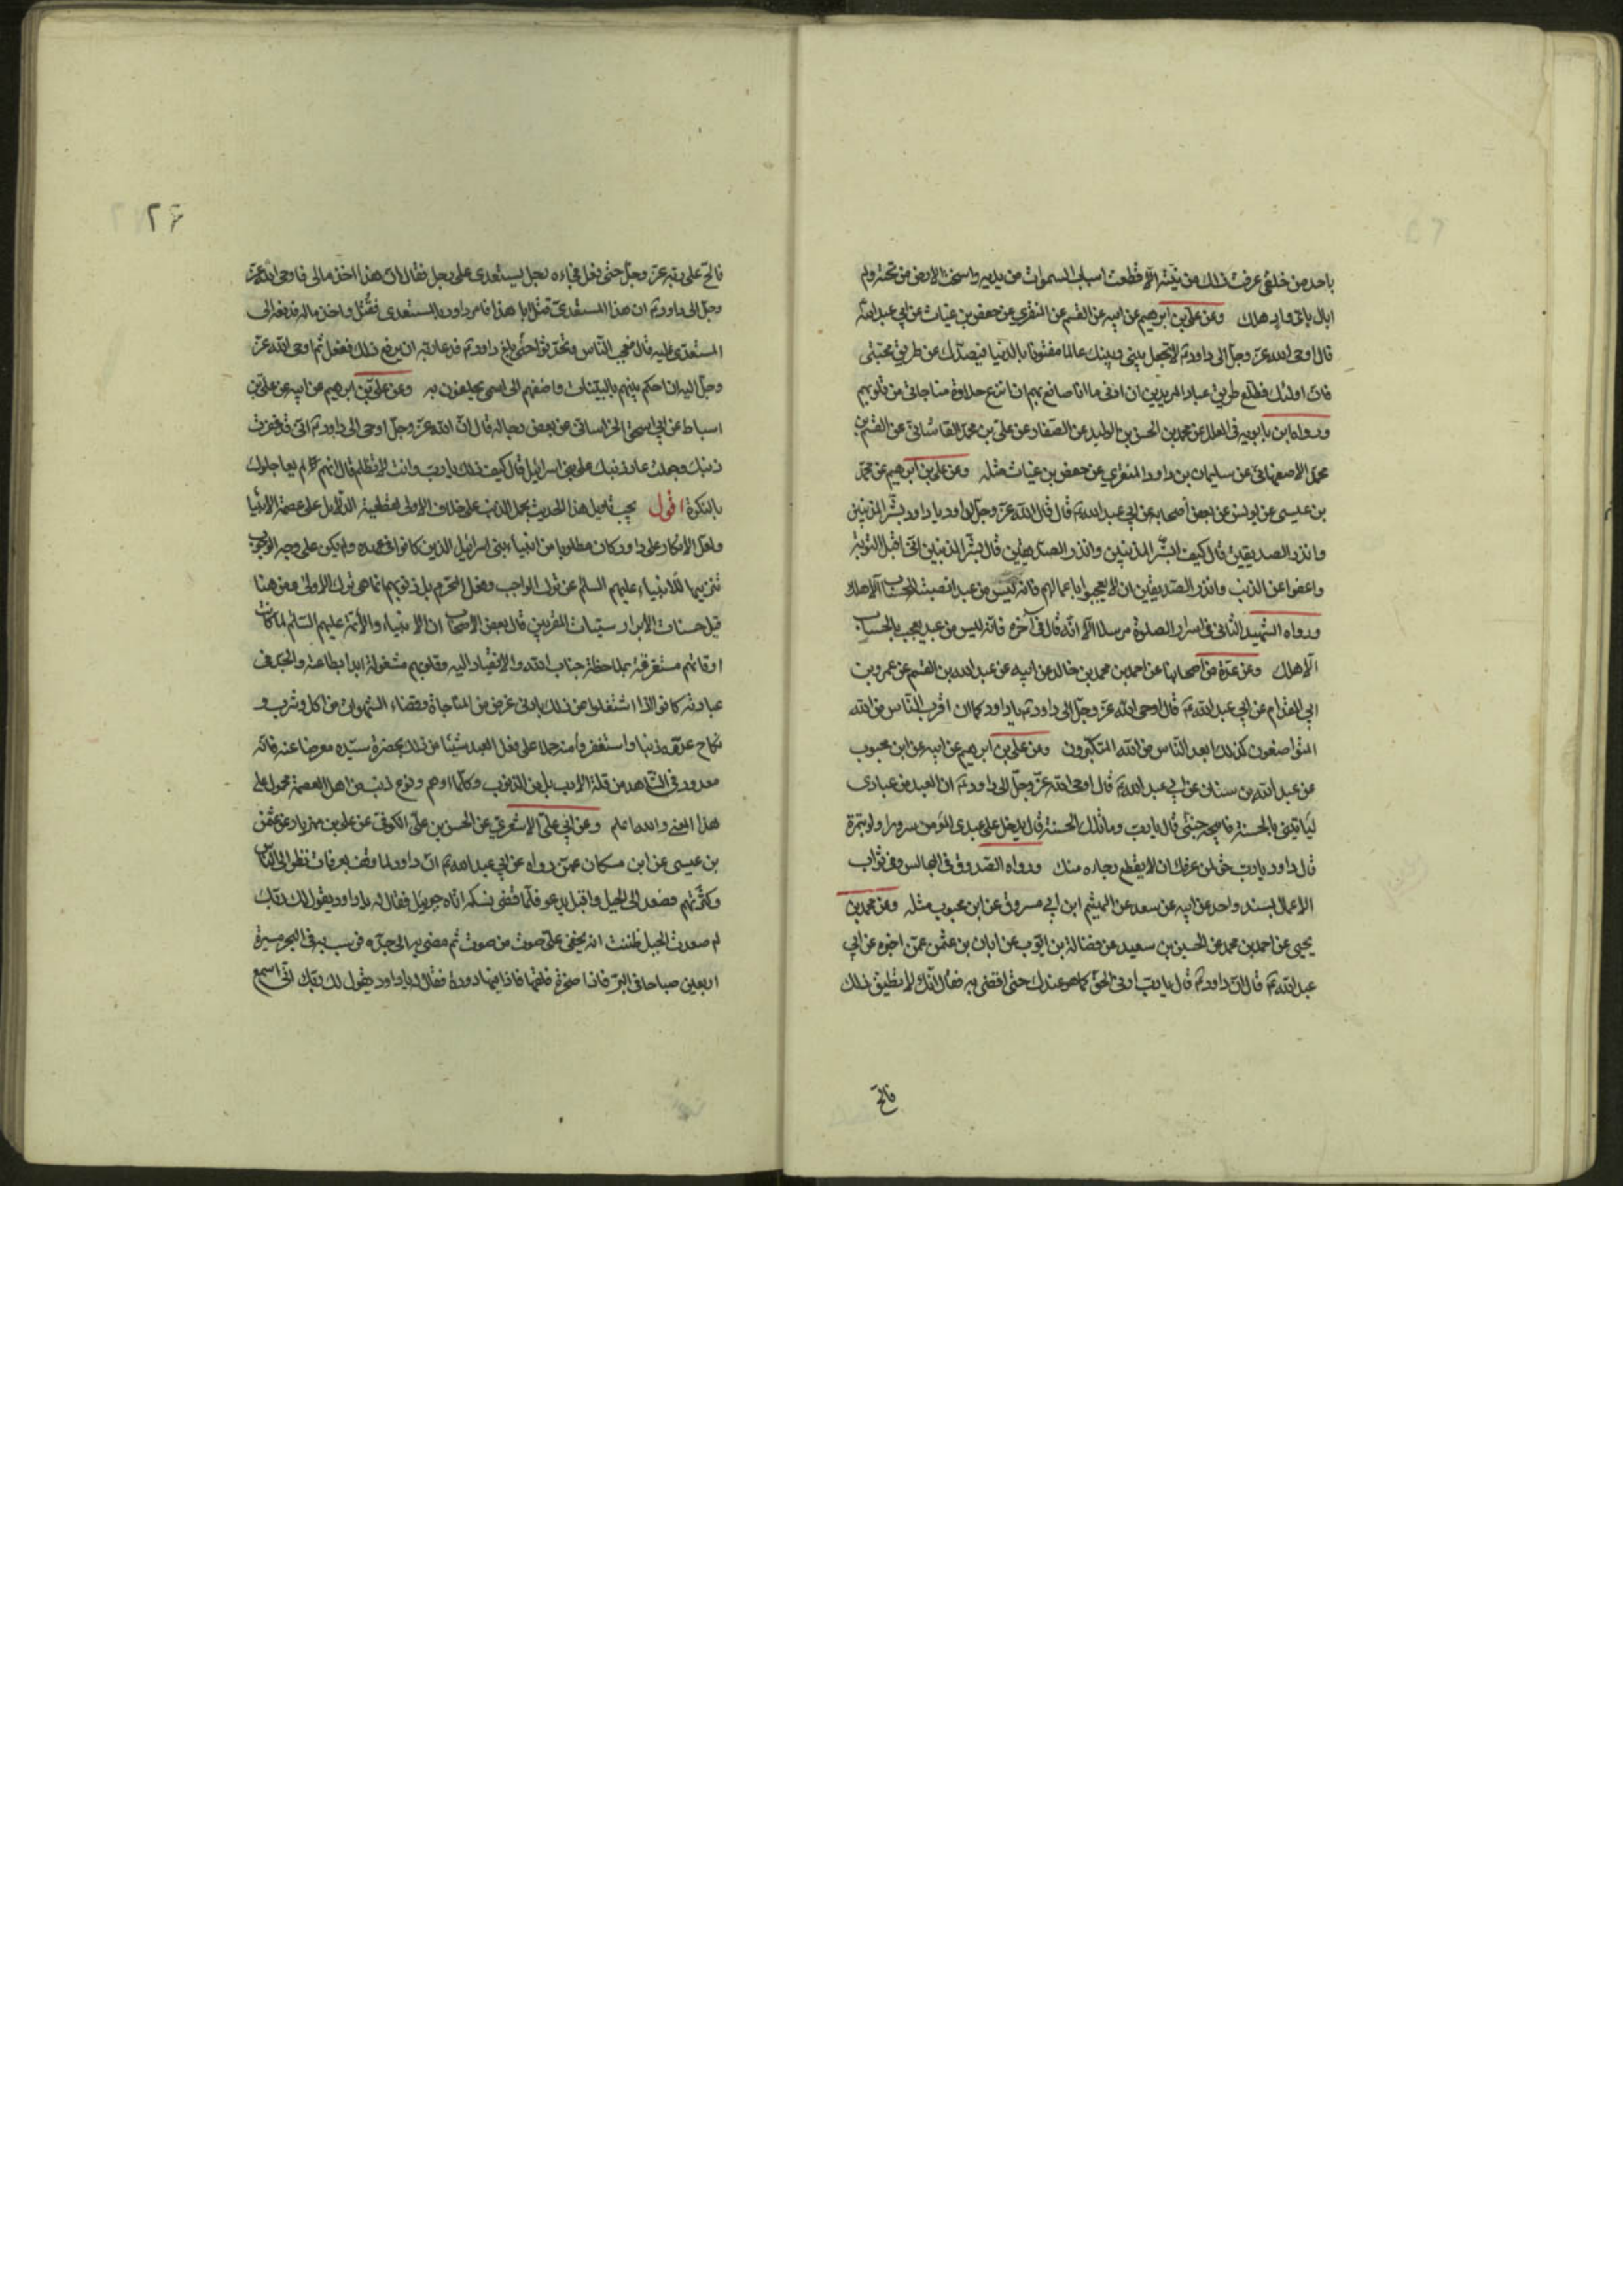 باحد من خلقى عرفت ذلك من نيّته الّا قطعت اسباب السموات من يديه واسخت الارض من تحته ولم
ابال باىّ واد هلك وعن علىّ بن ابرهيم عن ابيه عن القسم عن المنقرى عن حفص بن غياث عن ابى عبد اللهؑ
قال اوحى الله عزّ وجلّ الى داودؑ لا تجعل بينى وبينك عالما مفتونا بالدنيا فيصدّك عن طريق محبّتى
فانّ اولئك قطّاع طريق عباد المريدين ان ادنى ما انا صانع بهم ان انزع حلاوة مناجاتى من قلوبهم
ورواه ابن بابويه فى العلل عن محمد بن الحسن بن الوليد عن الصفار عن على بن محمد القاسانى عن القسم بن
محمد الاصفهانى عن سليمان بن داود المنقرى عن حفص بن غياث مثله وعن على بن ابرهيم عن محمد
بن عيسى عن يونس عن بعض أصحابه عن ابى عبد اللهؑ قال قال الله عزّ وجلّ لداود يا داود بشّر المذنبين
وانذر الصديقين قال كيف ابشّر المذنبين وانذر الصدّيقين قال بشّر المذنبين انّى اقبل التوبة
واعفوا عن الذنب وانذر الصدّيقين ان لا يعجبوا باعمالهم فانه ليس من عبد انصبه للحساب الّا هلك
ورواه الشهيد الثانى فى اسرار الصلوة مرسلا الّا انّه قال فى آخره فانّه ليس من عبد يعجب بالحساب
الّا هلك وعن عدّة من أصحابنا عن احمد بن محمد بن خالد عن ابيه عن عبد الله بن القسم عن عمرو بن
ابى المقدام عن ابى عبد اللهؑ قال اوحى الله عزّ وجلّ الى داودؑ يا داود كما ان اقرب النّاس من الله
المتواضعون كذلك ابعد النّاس من الله المتكبّرون وعن على بن ابرهيم عن ابيه عن ابن محبوب
عن عبد الله بن سنان عن ابى عبد اللهؑ قال اوحى الله عزّ وجلّ الى داودؑ ان العبد من عبادى
ليأتينى بالحسنة فابيحه جنّتى قال يا ربّ وما تلك الحسنة قال يدخل على عبدى المؤمن سرورا ولو بتمرة
قال داود يا ربّ حقّ لمن عرفك ان لا يقطع رجاءه منك ورواه الصدوق فى المجالس وفى ثواب
الاعمال بسند واحد عن ابيه عن سعد عن الهيثم ابن ابى مسروق عن ابن محبوب مثله وعن محمد بن
يحيى عن احمد بن محمد عن الحسين بن سعيد عن فضالة بن ايّوب عن ابان بن عثمن عمّن اخبره عن ابى
عبد اللهؑ قال انّ داودؑ قال يا ربّ ارنى الحقّ كما هو عندك حتّى اقضى به فقال انّك لا تطيق ذلك
فالحّ
٢٦
فالحّ على ربّه عزّ وجلّ حتّى فعل فجاءه رجل يستعدى على رجل فقال انّ هذا اخذ مالى فاوحى الله عزّ
وجلّ الى داودؑ ان هذا المستعدى قتل ابا هذا فامر داود بالمستعدى فقُتل واخذ ماله فدفعه الى
المستعدى عليه قال فعجب النّاس وتحدّثوا حتّى بلغ داودؑ فدعا ربّه ان يرفع ذلك ففعل ثم اوحى الله عزّ
وجلّ اليه ان احكم بينهم بالبيّنات واضفهم الى اسمى يحلفون به وعن علىّ بن ابرهيم عن ابيه عن علىّ بن
اسباط عن ابى اسحق الخراسانى عن بعض رجاله قال انّ الله عزّ وجلّ اوحى الى داودؑ انّى قد غفرت
ذنبك وجعلت عار ذنبك على بنى اسرائيل قال كيف ذلك يا ربّ وانت لا تظلم قال انهم لم يعاجلوك
بالنكرة اقول يجب تاويل هذا الحديث بحمل الذنب على خلاف الاولى لقطعية الدّلايل على عصمة الانبيا
ولعلّ الانكار على داود كان مطلوبا من انبياء بنى اسرائيل الذين كانوا فى عهده ولم يكن على وجه الوجوب
تنزيها للانبياء عليهم السلم عن ترك الواجب وفعل المحرّم بل ذنوبهم انما هى ترك الاولى ومن هنا
قيل حسنات الابرار سيّئات المقربين قال بعض الاصحاب ان الانبياء والأئمّة عليهم السّلم لمّا كانت
اوقاتهم مستغرقة بملاحظة جناب الله والانقياد اليه وقلوبهم مشغولة ابدا بطاعته والجدّ فى
عبادته كانوا اذا اشتغلوا عن ذلك بادنى غرض من المناجاة وقضاء الشهوات من اكل وشرب و
نكاح عدّوه ذنبا واستغفروا منه حملا على فعل العبد شيئا من ذلك بحضرة سيّده معرضا عنه فانّه
معدود فى الشّاهد من قلة الادب بل من الذنوب وكلّما اوهم وقوع ذنب من اهل العصمة محمول على
هذا المعنى والله اعلم وعن ابى علىّ الاشعرى عن الحسن بن علىّ الكوفى عن على بن مهزيار عن عثمن
بن عيسى عن ابن مسكان عمّن رواه عن ابى عبد اللهؑ انّ داود لما وقف بعرفات نظر الى النّاس
وكثرتهم فصعد الى الجبل واقبل يدعو فلمّا قضى نسكه اتاه جبرئيل فقال له يا داود يقول لك ربّك
لم صعدت الجبل ظننت انه يخفى علىّ صوت من صوت ثم مضى به الى جدّه فرسب به فى البحر مسيرة
اربعين صباحا فى البرّ فاذا صخرة ففلقها فاذا فيها دودة فقال له يا داود يقول لك ربّك انّى اسمع